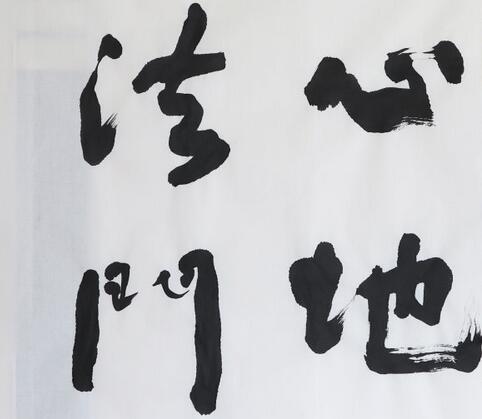 心地
法門